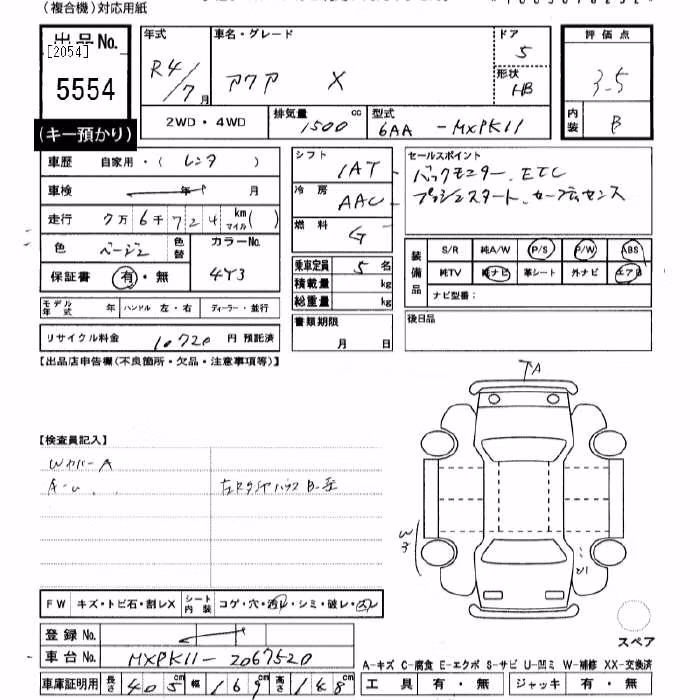 (複合機)対応用紙
出品No. [2054]
5554
(キー預かり)
年式 R4/7月
車名・グレード アクア X
ドア 5
形状 HB
評価点 3.5
内装 B
2WD・4WD
排気量 1500 cc
型式 6AA-MXPK11
車歴 自家用・(レンタ)
車検 年 月
走行 7万6千724 km マイル( )
色 ベージュ 色替
カラーNo. 4Y3
保証書 有・無
モデル年式 年 ハンドル 左・右 ディーラー・並行
リサイクル料金 10720 円 預託済
シフト IAT
冷房 AAC
燃料 G
乗車定員 5 名
積載量 kg
総重量 kg
書類期限
月 日
セールスポイント
バックモニター、ETC
プッシュスタート、セーフティセンス
装備品
S/R 純A/W P/S P/W ABS
純TV 純ナビ 革シート 外ナビ エアB
ナビ型番:
後日品
【出品店申告欄(不良箇所・欠品・注意事項等)】
【検査員記入】
WカバーA
A-U
左Rタイヤハウス
A
W3
U1
FW キズ・トビ石・割レX シート内装 コゲ・穴・スレ・シミ・破レ・
登録No.
車台No. MXPK11-2067520
車庫証明用 長さ 405cm 幅 169cm 高さ 148cm
スペア
A-キズ C-腐食 E-エクボ S-サビ U-凹ミ W-補修 XX-交換済
工具 有・無 ジャッキ 有・無